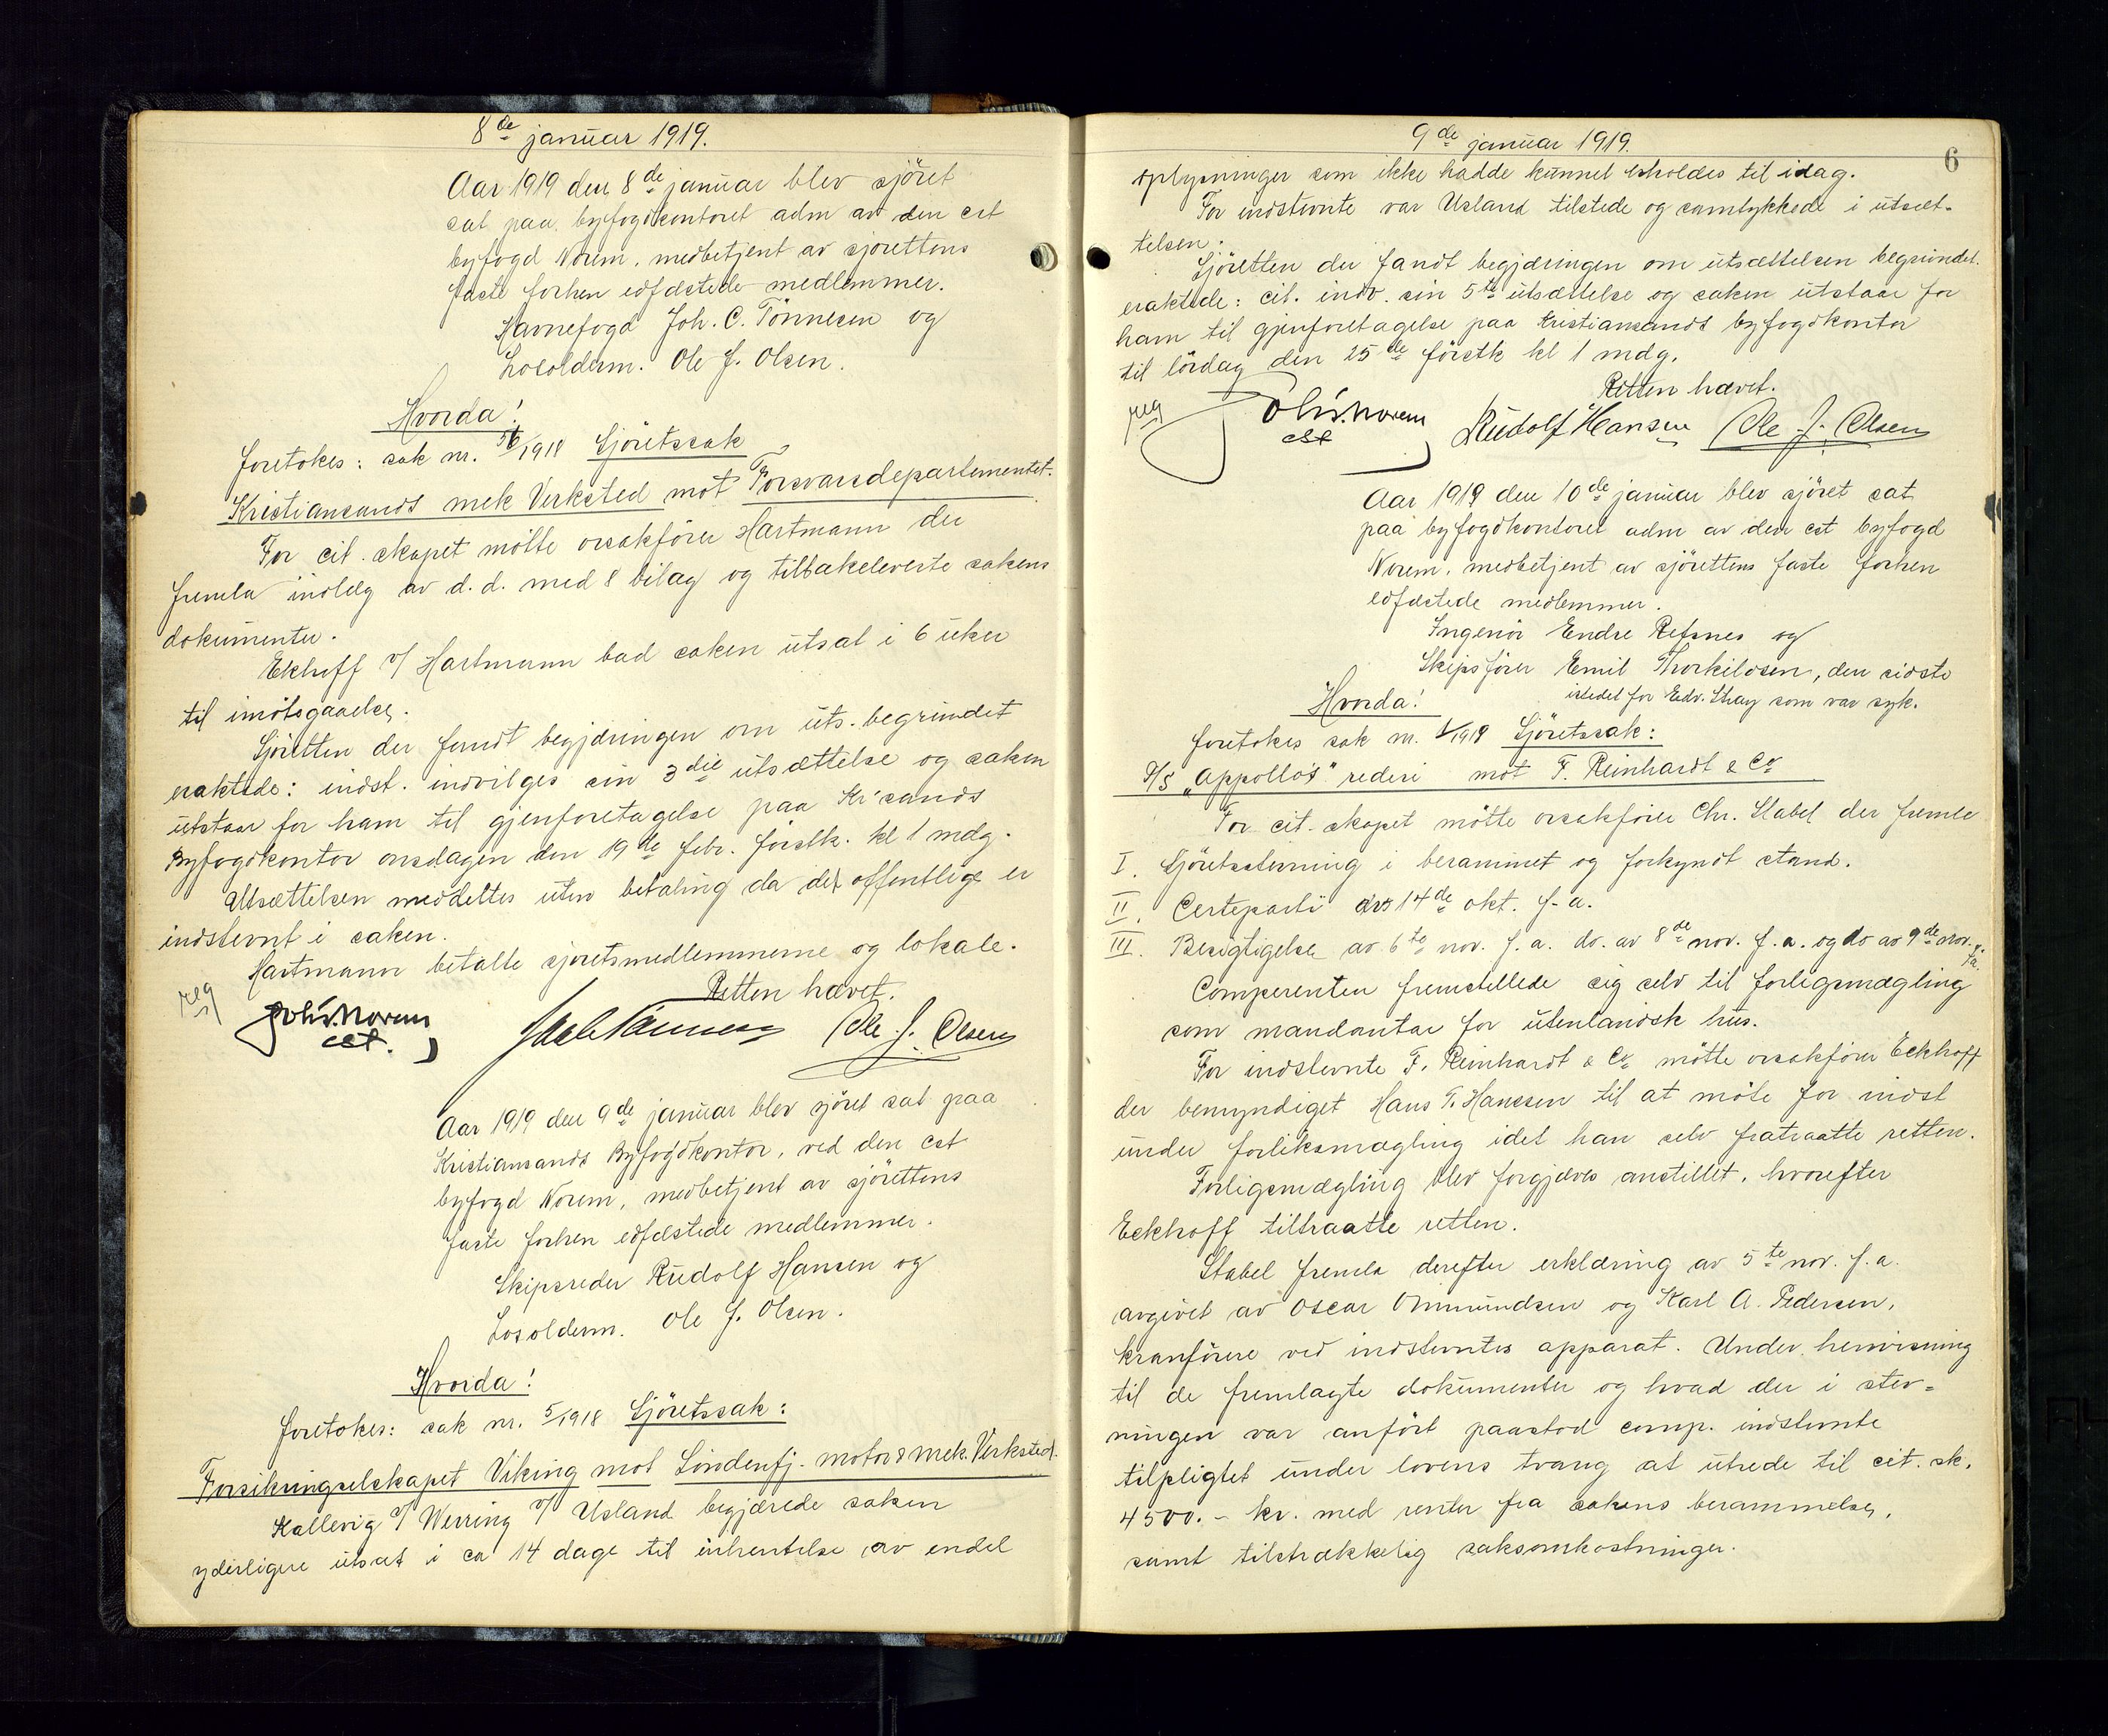 8de januar 1919.
Aar 1919 den 8de januar blev sjöret
sat paa byfogdkontoret adm av den cst
byfogd Norem, medbetjent av sjörettens
faste forhen edfæstede medlemmer.
Havnefogd Joh. C. Tönnesen og
Losolderm. Ole J. Olsen.
Hvorda!
foretokes: sak nr. /1918 Sjöretssak
Kristiansands mek Verksted mot Forsvarsdepartementet.
For cit. skapet mötte orsakförer Hartmann der
fremla indlæg av d.d. med 8 bilag og tilbakeleverte sakens
dokumenter.
Ekhoff v/ Hartmann bad saken utsat i 6 uker
til imötegaaelse.
Sjöretten der fandt begjæringen om uts. begrundet
eraktede: indst. indvilges sin 3die utsættelse og saken
utstaar for ham til gjenforetagelse paa Kr'sands
Byfogdkontor onsdagen den 19de febr. förstk. kl 1 mdg.
Utsættelsen meddeltes uten betaling da det offentlige er
indstevnt i saken.
Hartmann betalte sjöretsmedlemmerne og lokale.
Retten hævet.
Johs. Norem
cst.
Ole J. Olsen
Aar 1919 den 9de januar blev sjöret sat paa
Kristiansands Byfogdkontor, ved den cst
byfogd Norem, medbetjent av sjörettens
faste forhen edfæstede medlemmer.
Skipsreder Rudolf Hansen og
Losolderm. Ole J. Olsen.
Hvorda!
foretokes: sak nr. 5/1918 Sjöretssak:
Forsikringselskapet Viking mot Söndenfj. motor & mek. Verksted.
Kallevig v/ Werring v/ Usland begjærede saken
yderligere utsat i ca 14 dage til inhentelse av endel
9de januar 1919.
6
oplysninger som ikke hadde kunnet erholdes til idag.
For indstevnte var Usland tilstede og samtykkede i utsæt-
telsen.
Sjöretten der fandt begjæringen om utsættelsen begrundet.
eraktede: cit. indv. sin 5te utsættelse og saken utstaar for
ham til gjenforetagelse paa Kristiansands byfogdkontor
til lördag den 25de förstk kl 1 mdg.
Retten hævet.
Johs. Norem
cst
Rudolf Hansen Ole J. Olsen
Aar 1919 den 10de januar blev sjöret sat
paa byfogdkontoret adm av den cst byfogd
Norem, medbetjent av sjörettens faste forhen
edfæstede medlemmer.
Ingeniör Endre Refsnes og
Skipsförer Emil Thorkildsen, den sidste
istedet for Edv. Stray som var syk.
Hvorda!
foretokes sak nr. 1/1919 Sjöretssak:
D/S "Appollo's" rederi mot F. Reinhardt & Co
For cit. skapet mötte orsakförer Chr. Stabel der fremla
I. Sjöretsstevning i berammet og forkyndt stand.
II. Certeparti av 14de okt. f. a.
III. Besigtigelse av 6te nov. f. a. do. av 8de nov. f. a. og do av 9de nov. f.a.
Comperenten fremstillede sig selv til forligsmægling
som mandantar for utenlandsk hus.
For indstevnte F. Reinhardt & Co mötte orsakförer Eckhoff
der bemyndiget Hans T. Hanssen til at möte for indst
under forliksmægling idet han selv fratraatte retten.
Forligsmægling blev forgjæves anstillet, hvorefter
Eckhoff tiltraatte retten.
Stabel fremla derefter erklæring av 5te nov. f. a.
avgivet av Oscar Ommundsen og Karl A. Pedersen,
kranförere ved indstevntes apparat. Under henvisning
til de fremlagte dokumenter og hvad der i stev-
ningen var anfört paastod comp. indstevnte
tilpligtet under lovens tvang at utrede til cit. sk.
4500.- kr. med renter fra sakens berammelse,
samt tilstrækkelig saksomkostninger.